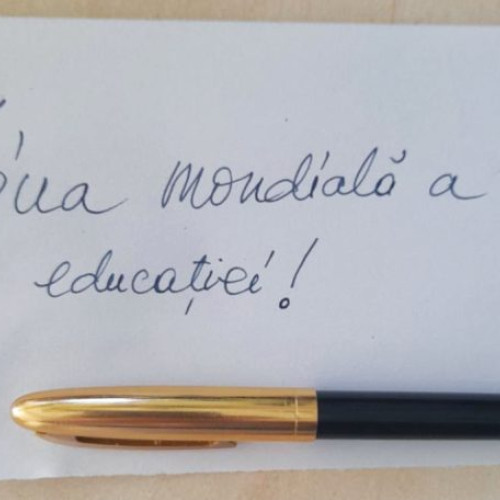 Ziua mondială a
educației!